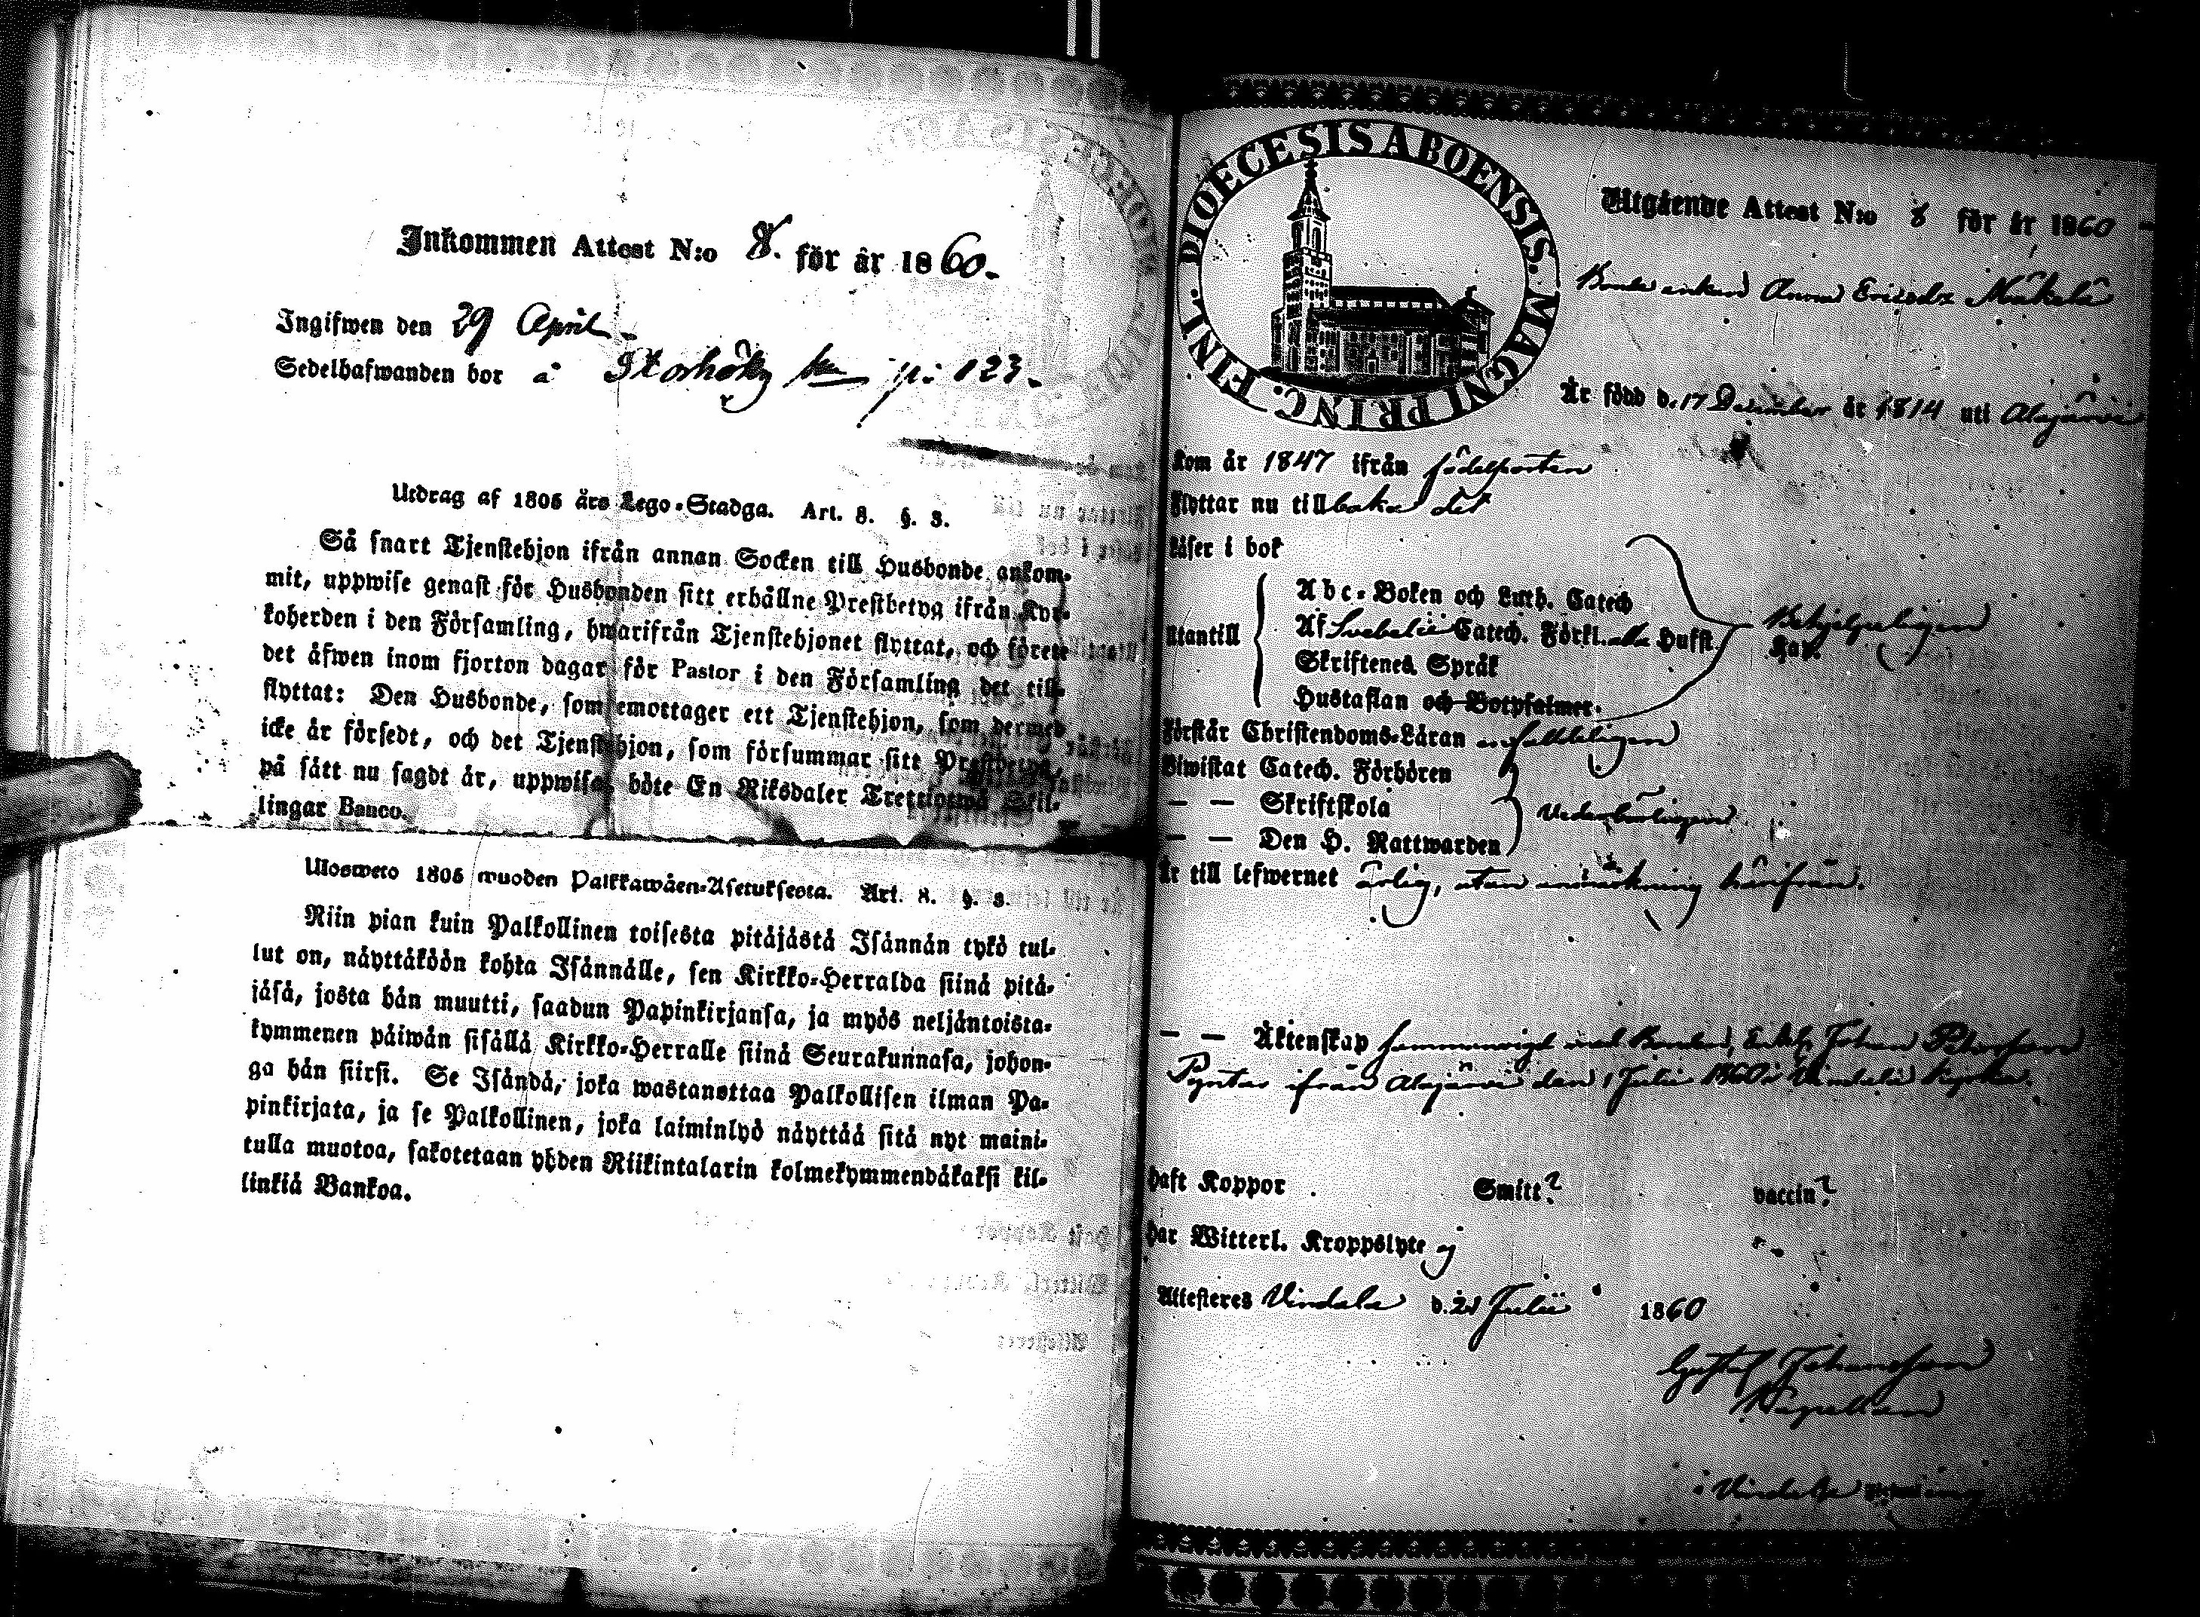 Inkommen Attest N:o 8. för år 1860.
Ingifwen den 29 April
Sedelhafwanden bor å p: 123.
Utdrag af 1805 års Lego-Stadga. Art. 8. §. 3.
Så snart Tjenstehjon ifrån annan Socken till Husbonde ankom-
mit, uppwise genast för Husbonden sitt erhållne Prestbetyg ifrån Kyr-
koherden i den Församling, hwarifrån Tjenstehjonet flyttat, och förete
det åfwen inom fjorton dagar för Pastor i den Församling det till-
flyttat: Den Husbonde, som emottager ett Tjenstehjon, som dermed
icke år försedt, och det Tjenstehjon, som försummar sitt Prestbetyg,
på sått nu sagdt år, uppwisa, böte En Riksdaler Trettiotwå Skil-
lingar Banco.
Ulosweto 1805 wuoden Palkkawåen-Asetuksesta. Art. 8. §. 3.
Niin pian kuin Palkollinen toisesta pitåjåstå Isånnån tykö tul-
lut on, nåyttåköön kohta Isånnålle, sen Kirkko-Herralda siinå pitå-
jåså, josta hån muutti, saadun Papinkirjansa, ja myös neljåntoista-
kymmenen påiwån sisållå Kirkko-Herralle siinå Seurakunnasa, johon-
ga hån siirsi. Se Isåndå, joka wastanottaa Palkollisen ilman Pa-
pinkirjata, ja se Palkollinen, joka laiminlyö nåyttåå sitå nyt maini-
tulla muotoa, sakotetaan yhden Riikintalarin kolmekymmendåkaksi kil-
linkiå Bankoa.
DIOECESIS ABOENSIS. MAGNI PRINC. FINL.
Utgående Attest N:o 8 för år 1860
Bonde enkan Anna Ericsdr Mäkelä
Är född d. 17 December år 1814 uti Alajärvi
Kom år 1847 ifrån födelseorten
Flyttar nu tillbaka dit
Läser i bok
Utantill
Abc-Boken och Luth. Catech
Af Svebelii Catech. Förkl. alla Husst.
Skriftenes Språk
Hustaflan och Botpsalmer.
Behjelpeligen
Förstår Christendoms-Läran enfaldeligen
Biwistat Catech. Förhören
— — Skriftskola
— — Den H. Nattwarden
Vederbörligen
Är till lefwernet ärlig, utan anmärkning härifrån.
— — Äktenskap sammanvigd med Bonden, Enkl. Johan
ifrån Alajärvi den 1 Julii 1860 i Vindala kyrka.
Haft Koppor Smitt? vaccin?
Har Witterl. Kroppslyte ej
Attesteras Vindala d. 2 Julii 1860
Gustaf Johansson
Kapellan
Vindala